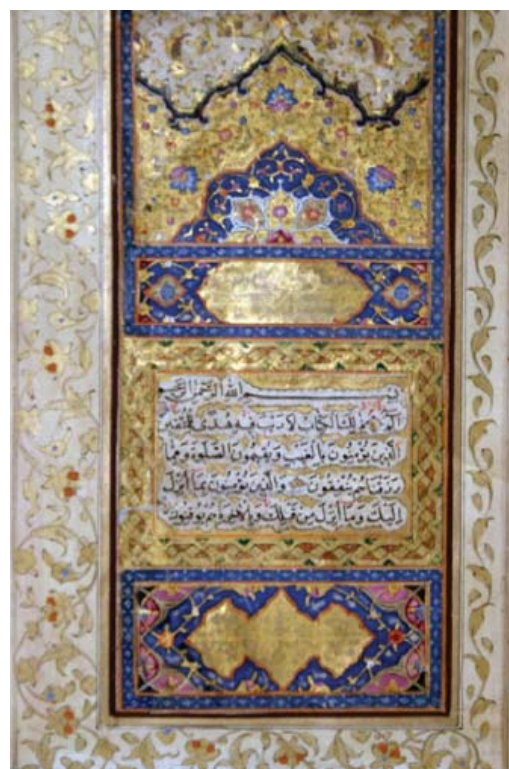 بسم الله الرحمن الرحيم
الم ذلك الكتاب لا ريب فيه هدى للمتقين
الذين يؤمنون بالغيب ويقيمون الصلوة ومما
رزقناهم ينفقون والذين يؤمنون بما أنزل
إليك وما أنزل من قبلك وبالآخرة هم يوقنون